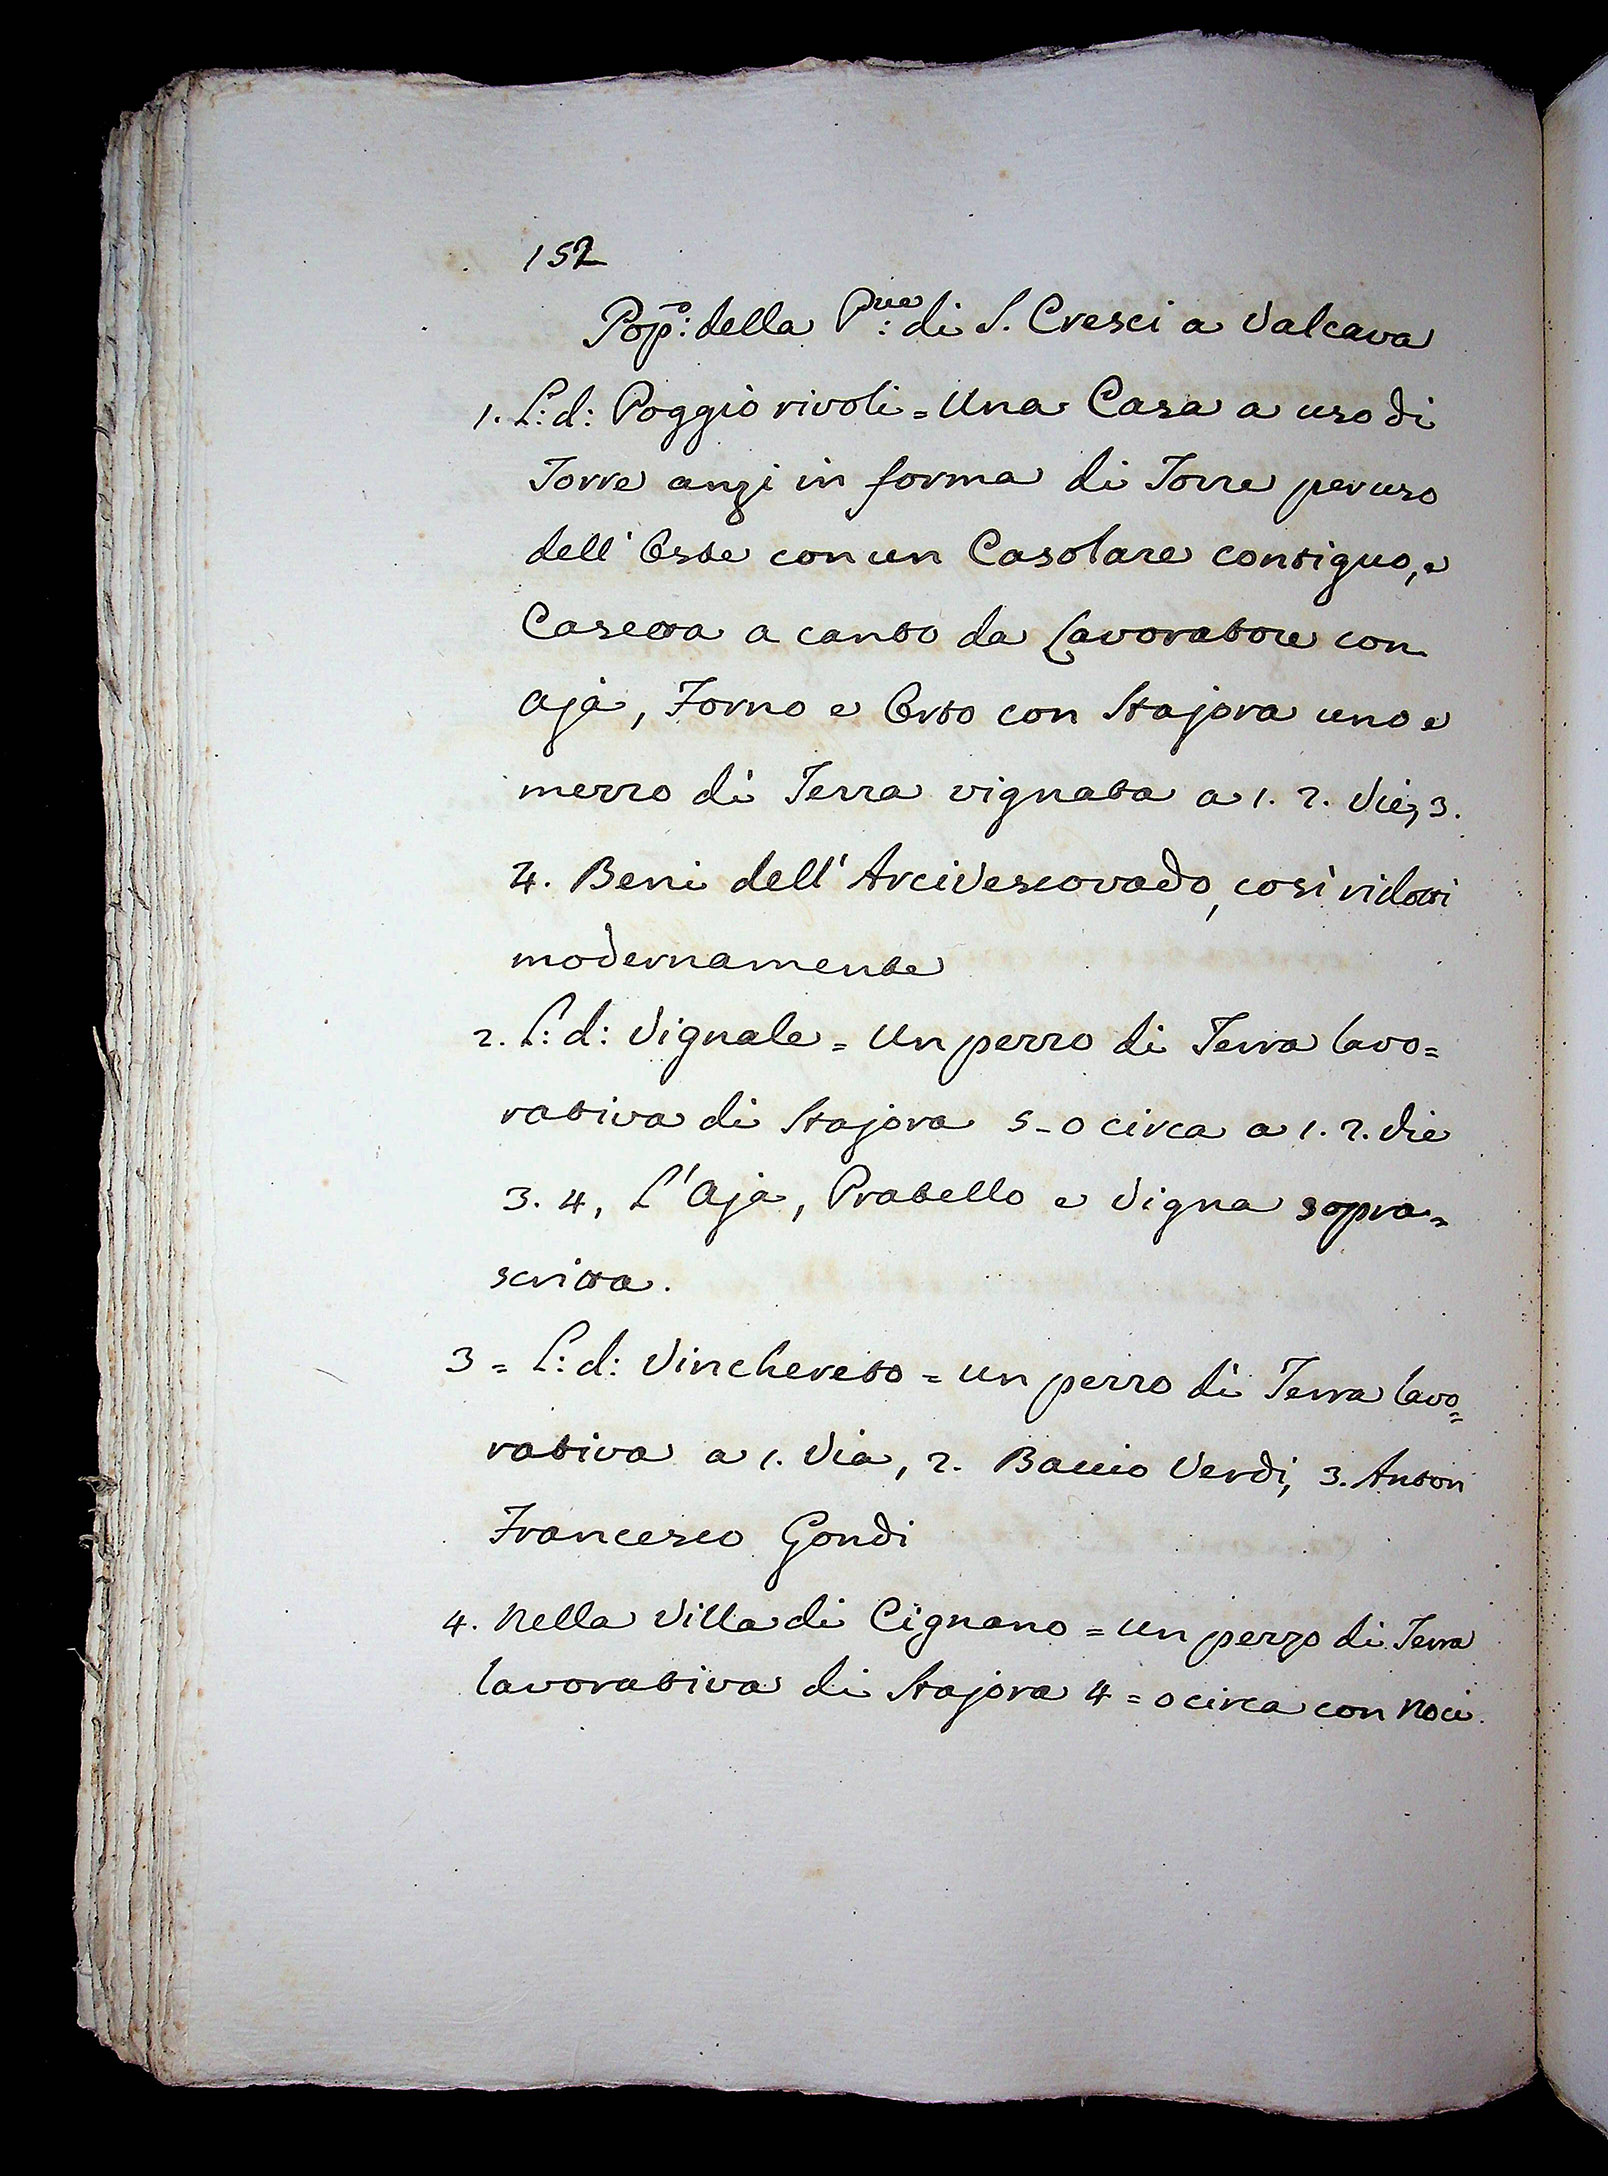 152
Pop:o della P:ve di S. Cresci a Valcava
1. L: d: Poggio rivoli = Una Casa a uso di
Torre anzi in forma di Torre per uso
dell' Oste con un Casolare contiguo, e
Casetta a canto da Lavoratore con
Aja, Forno e Orto con Stajora uno e
mezzo di Terra vignata a 1. 2. Vie, 3.
4. Beni dell' Arcivescovado, così ridotti
modernamente
2. L: d: Vignale = Un pezzo di Terra lavo=
rativa di Stajora 5-0 circa a 1. 2. Vie
3. 4, L'Aja, Pratello e Vigna sopra=
scritta.
3 = L: d: Vinchereto = un pezzo di Terra lavo=
rativa a 1. Via, 2. Baccio Verdi, 3. Anton
Francesco Gondi
4. Nella Villa di Cignano = un pezzo di Terra
lavorativa di Stajora 4=0 circa con Noci